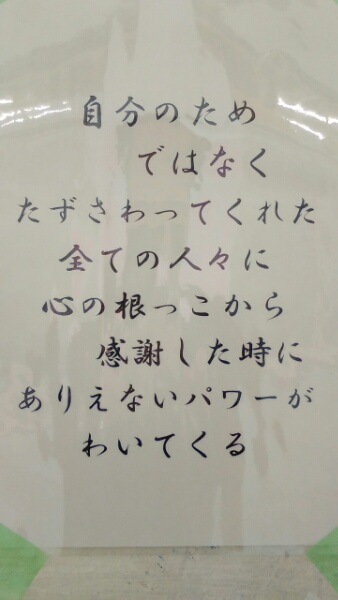 自分のため
ではなく
たずさわってくれた
全ての人々に
心の根っこから
感謝した時に
ありえないパワーが
わいてくる